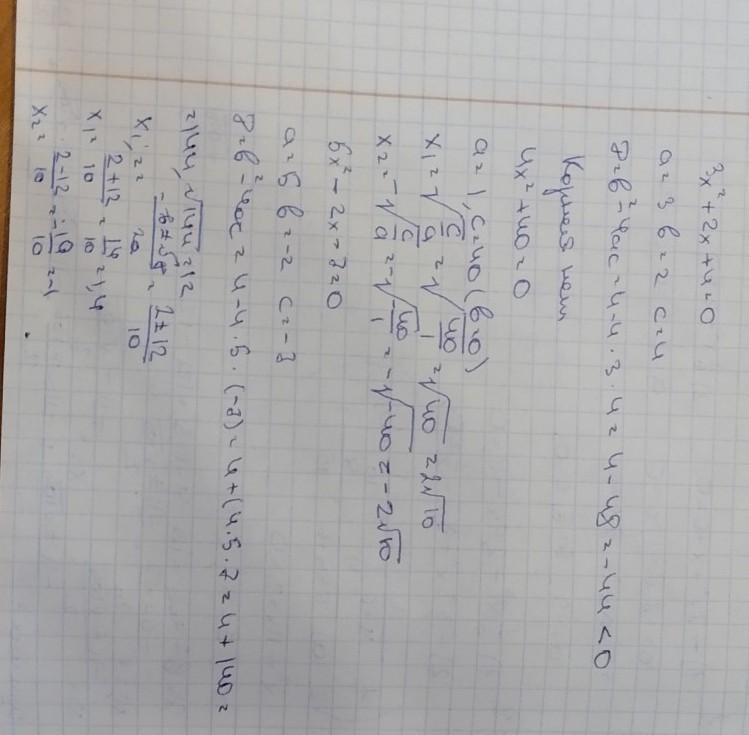 3x²+2x+4=0
a=3 b=2 c=4
D=b²-4ac=4-4·3·4=4-48=-44<0
Корней нет
4x²+40=0
a=1, c=40 (b=0)
x₁=√c/a=√40/1=√40=2√10
x₂=-√c/a=-√40/1=-√40=-2√10
5x²-2x-7=0
a=5 b=-2 c=-7
D=b²-4ac=4-4·5·(-7)=4+(4·5·7=4+140=
=144, √144=12
x₁,₂=-b±√D/2a=2±12/10
x₁=2+12/10=14/10=1,4
x₂=2-12/10=-10/10=-1